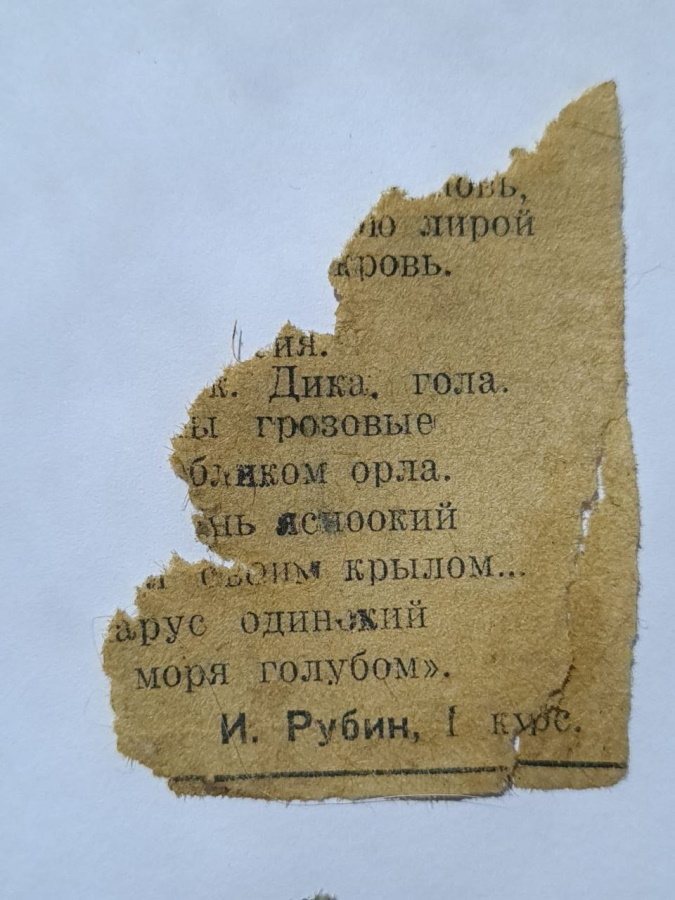 овь,
ю лирой
кровь.
ия.
к. Дика, гола.
ы грозовые
бликом орла.
нь ясноокий
я своим крылом...
арус одинокий
моря голубом».
И. Рубин, I курс.